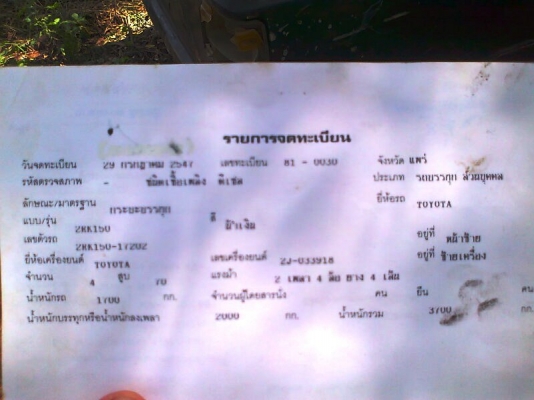 รายการจดทะเบียน
วันจดทะเบียน 29 กรกฎาคม 2547 เลขทะเบียน 81 - 0030 จังหวัด แพร่
รหัสตรวจสภาพ - ชนิดเชื้อเพลิง ดีเซล ประเภท รถบรรทุก ส่วนบุคคล
ลักษณะ/มาตรฐาน กระบะบรรทุก สี ฟ้าเงิน ยี่ห้อรถ TOYOTA
แบบ/รุ่น 2RK150
เลขตัวรถ 2RK150-17202 อยู่ที่ หน้าซ้าย
ยี่ห้อเครื่องยนต์ TOYOTA เลขเครื่องยนต์ 2J-033918 อยู่ที่ ซ้ายเครื่อง
จำนวน 4 สูบ 70 แรงม้า 2 เพลา 4 ล้อ ยาง 4 เส้น
น้ำหนักรถ 1700 กก. จำนวนผู้โดยสารนั่ง คน ยืน คน
น้ำหนักบรรทุกหรือน้ำหนักลงเพลา 2000 กก. น้ำหนักรวม 3700 กก.